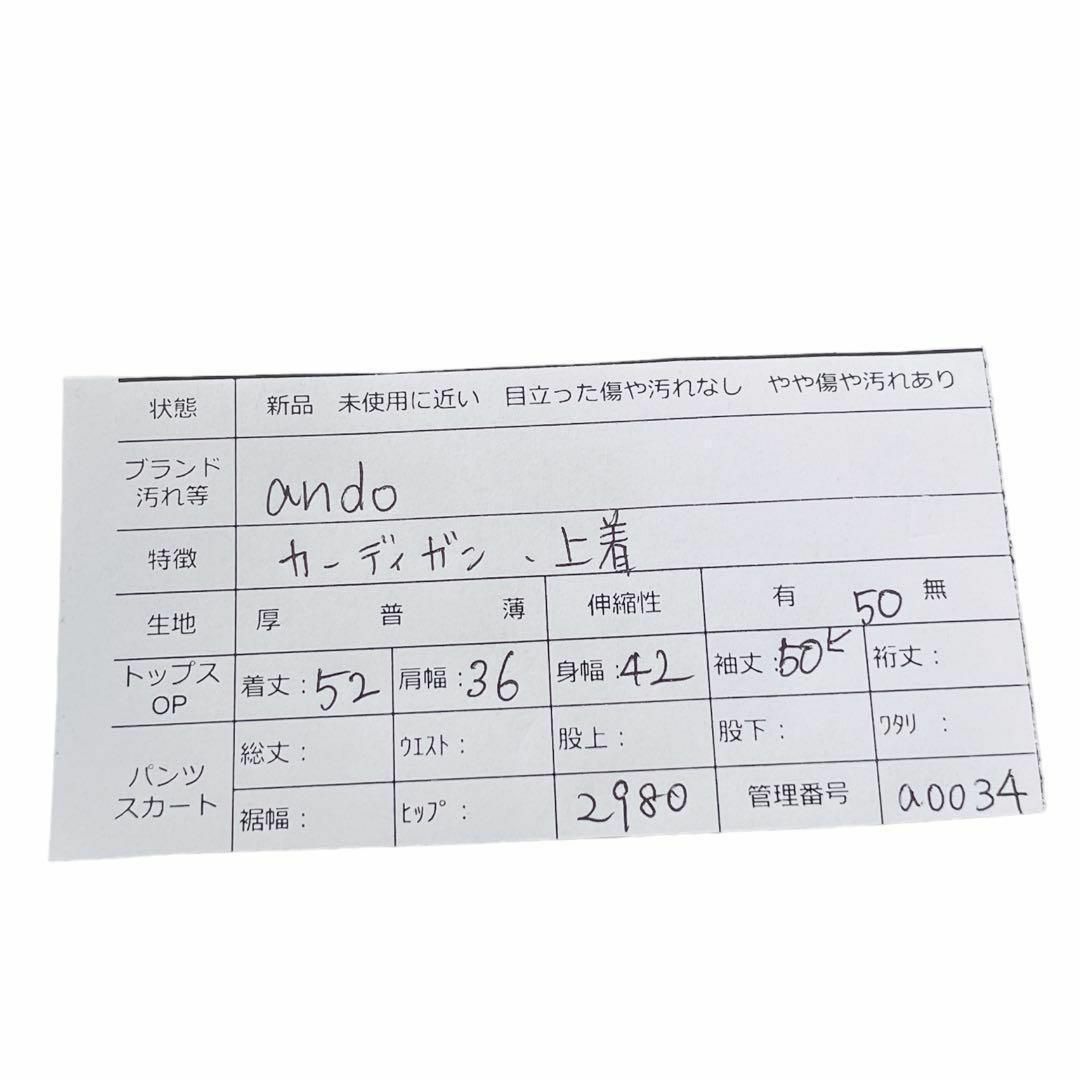 状態 新品 未使用に近い 目立った傷や汚れなし やや傷や汚れあり
ブランド
汚れ等
ando
特徴 カーディガン、上着
生地 厚 普 薄 伸縮性 有 無
50
トップス
OP
着丈：52 肩幅：36 身幅：42 袖丈：50 裄丈：
パンツ
スカート
総丈： ｳｴｽﾄ： 股上： 股下： ﾜﾀﾘ ：
裾幅： ﾋｯﾌﾟ： 2980 管理番号 a0034